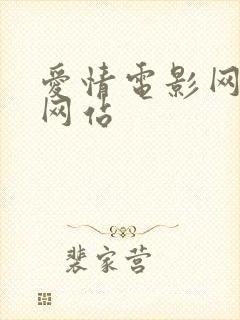 爱情电影网
网站
裴家营